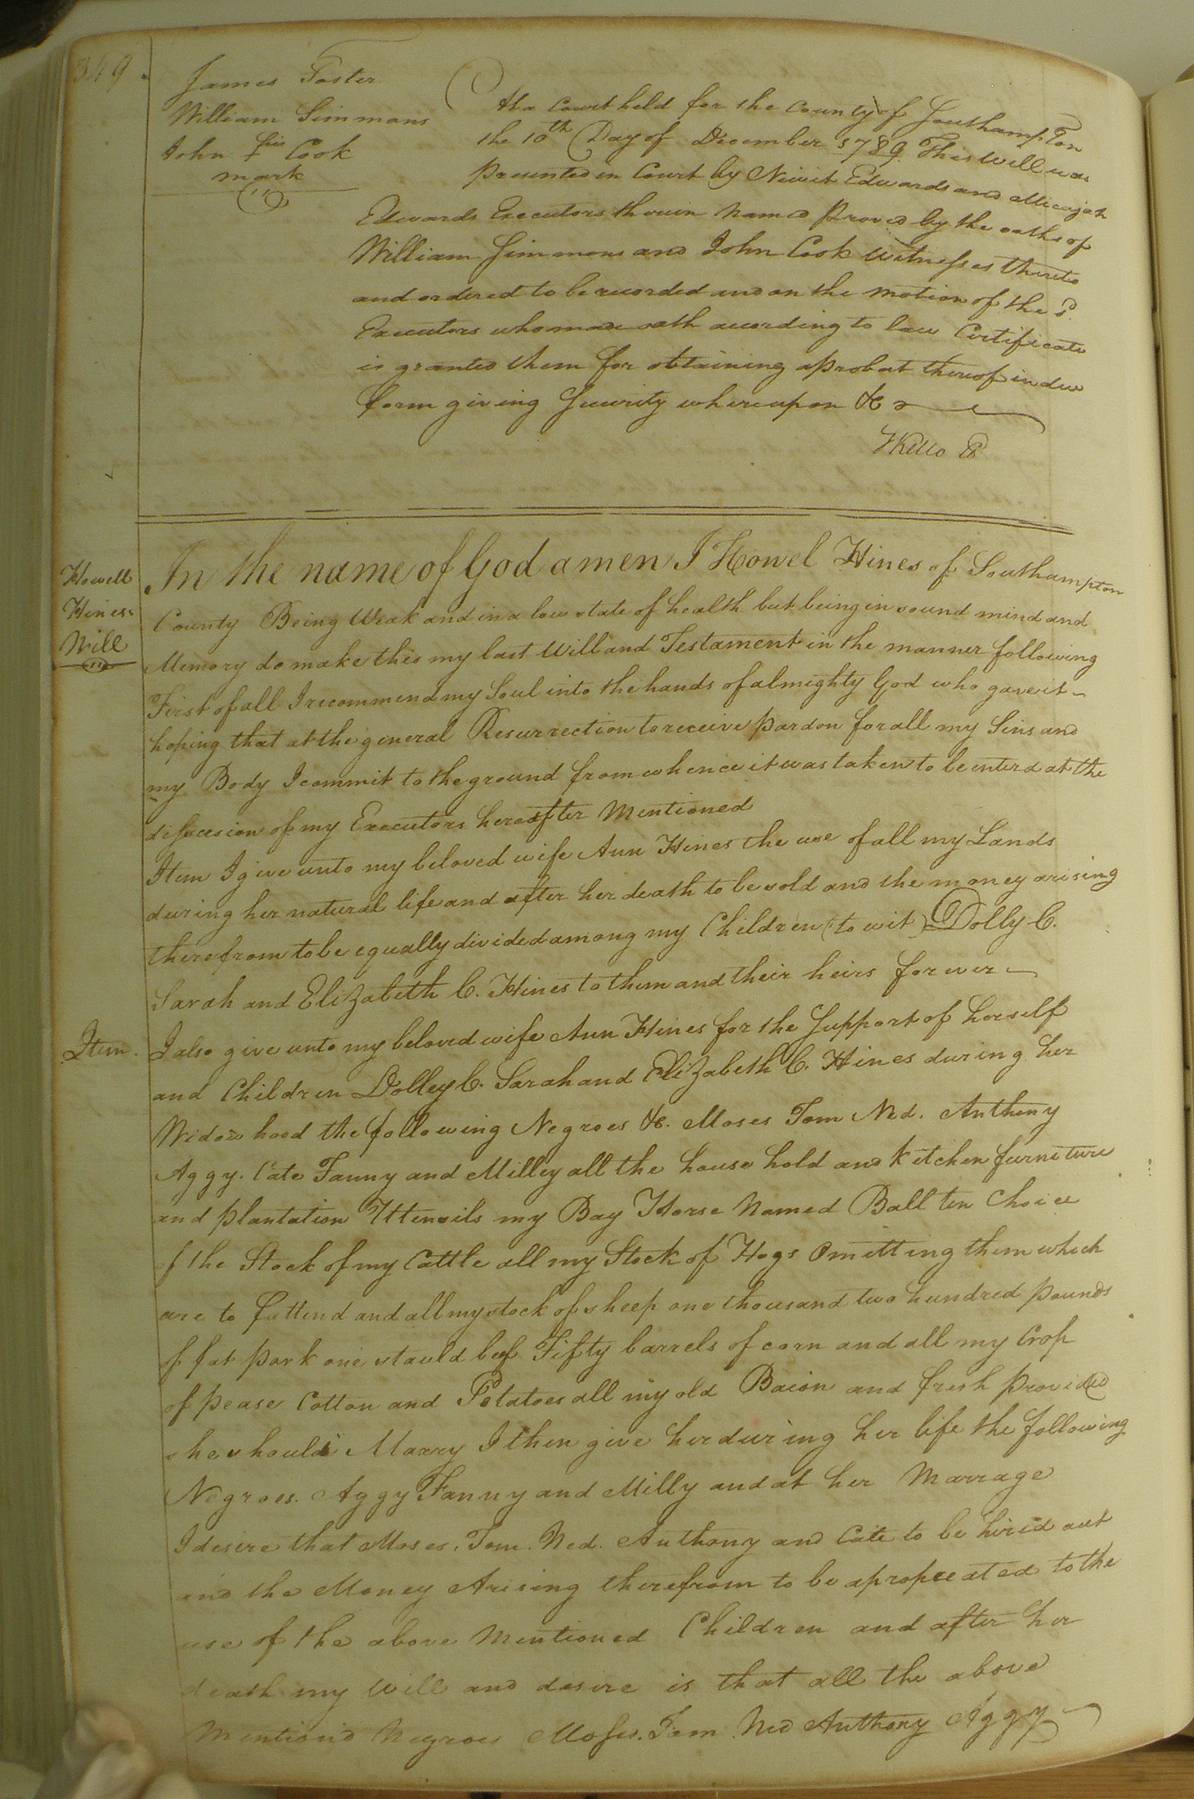 349.
James Foster
William Simmons
John his Cook
mark
At a Court held for the County of Southampton
the 10th Day of December 1789. This Will was
Presented in Court by Newit Edwards and Micajah
Edwards Executors therein Named Proved by the oaths of
William Simmons and John Cook Witnesses thereto
and ordered to be recorded and on the Motion of the Sd.
Executors who made oath according to law Certificate
is granted them for obtaining a Probat thereof in due
form giving Security whereupon &c
Howell
Hines's
Will
In the name of God amen I Howel Hines of Southampton
County Being Weak and in a low state of health but being in sound mind and
Memory do make this my last Will and Testament in the manner following
First of all I recommend my Soul into the hands of almighty God who gave it
hoping that at the general Resurrection to receive pardon for all my Sins and
my Body I commit to the ground from whence it was taken to be interd at the
discresion of my Executors hereafter Mentioned
Item I give unto my beloved wife Ann Hines the use of all my Lands
during her natural life and after her death to be sold and the money arising
therefrom to be equally divided among my Children (to wit) Dolly C.
Sarah and Elizabeth C. Hines to them and their heirs forever
Item. I also give unto my beloved wife Ann Hines for the Support of herself
and Children Dolley C. Sarah and Elizabeth C. Hines during her
Widowhood the following Negroes &c. Moses Tom Ned. Anthony
Aggy. Cate Fanny and Milley all the house hold and kitchen furniture
and plantation Uttensils my Bay Horse Named Ball ten Choice
of the Stock of my Cattle all my Stock of Hogs Omitting them which
are to fattend and all my stock of sheep one thousand two hundred pounds
of fat pork one stauld beef Fifty barrels of corn and all my Crop
of pease Cotton and Potatoes all my old Bacon and fresh provided
she should Marry I then give her during her life the following
Negroes. Aggy Fanny and Milly and at her Marrage
I desire that Moses. Tom. Ned. Anthony and Cate to be hired out
and the Money Arising therefrom to be apropreated to the
use of the above Mentioned Children and after her
death my Will and desire is that all the above
Mention'd Negroes Moses. Tom Ned Anthony Aggy